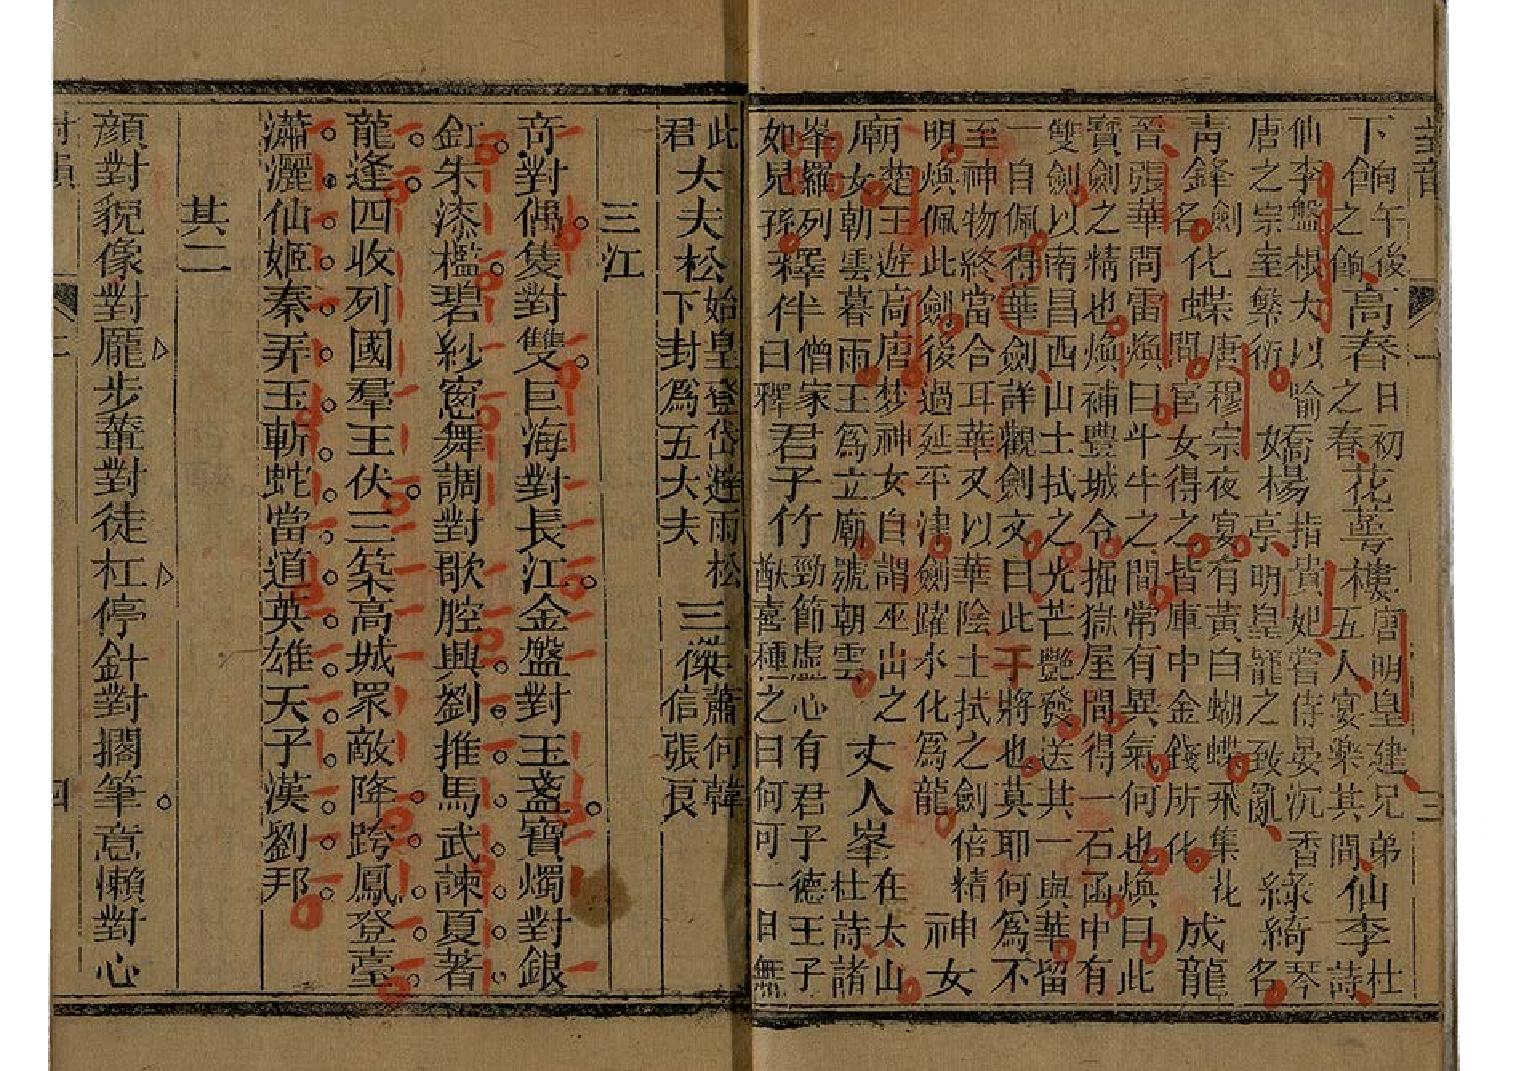 對韻
三
下餉餉午後之餉高春日初之春花萼樓唐明皇建兄弟五人宴樂其間仙李杜詩
仙李盤根大以喻唐之宗室繁衍喬女楊指貴妃嘗侍宴沉香亭明皇寵之致亂綠綺琴名
青鋒劍名化蝶唐穆宗夜宴有黃白蝴蝶飛集花間宮女得之皆庫中金錢所化成龍
晉張華問雷煥曰斗牛之間常有異氣何也煥曰此
寶劍之精也煥補豐城令掘獄屋間得一石函中有
雙劍以南昌西山土拭之光芒艷發送其一與華留
一自佩得華劍詳觀劍文曰此干將也莫耶何爲不
至神物終當合耳華又以華陰土拭之劍倍精
明煥佩此劍後過延平津劍躍水化爲龍神女
廟楚王遊高唐梦神女自謂巫山之女朝雲暮雨王爲立廟號朝雲丈人峯在太山杜詩諸
峯羅列如兒孫釋伴僧家半曰釋君子竹勁節虛心有君子德王子猷喜種之曰何可一日無
此君大夫松始皇登岱避雨松下封爲五大夫三傑蕭何韓信張良
三江
奇對偶隻對雙巨海對長江金盤對玉盞寶燭對銀
釭朱漆檻碧紗窓舞調對歌腔興劉推馬武諫夏著
龍逢四收列國羣王伏三築高城眾敵降跨鳳登臺
瀟灑仙姬秦弄玉斬蛇當道英雄天子漢劉邦
其二
顏對貌像對龐步輦對徒杠停針對擱筆意懶對心
四